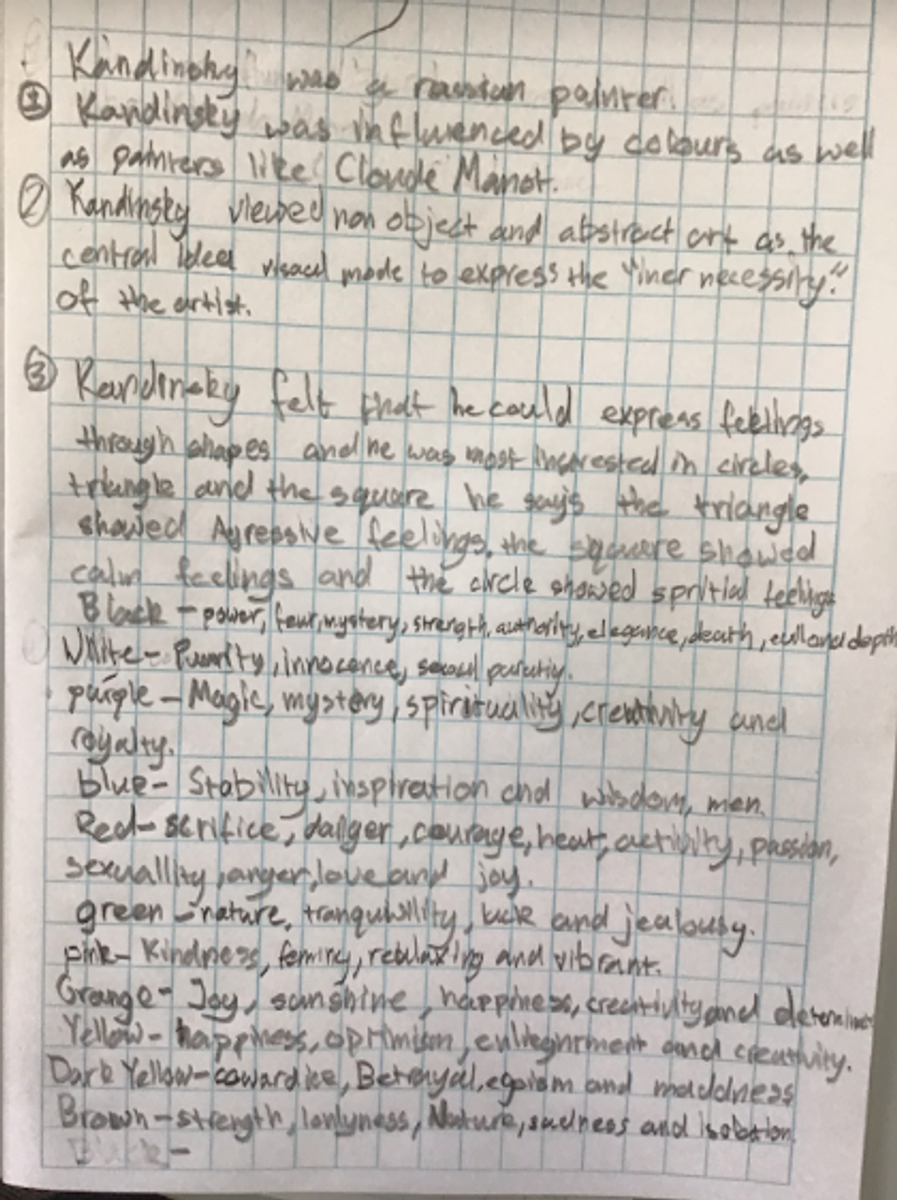 Kandinsky was a russian painter.
① Kandinsky was influenced by colours as well
as painters like Cloude Manot.
② Kandinsky viewed non object and abstract art as the
central idea visaul mode to express the "iner necessity."
of the artist.
③ Kandinsky felt that he could express feelings
through shapes and he was most interested in circles,
triangle and the square he says the triangle
showed Agressive feelings, the square showed
calm feelings and the circle showed spritial feelings
Black - power, fear, mystery, strength, authority, elegance, death, evil and depth
White - Purrity, innocence,
purple - Magic, mystery, spirituality, creativity and
royalty.
blue - Stability, inspiration and wisdom, men.
Red - scrifice, danger, courage, heat, activity, passion,
sexuallity, anger, love and joy.
green - nature, tranquility, luck and jealousy.
pink - Kindness, feminy, relaxing and vibrant.
Orange - Joy, sunshine, happiness, creativity and
Yellow - happiness, optimism, enlteghtment and creativity.
Dark Yellow - cowardice, Betrayal, egoism and maddness
Brown - strength, lonlyness, Nature, sadness and isolation
Black -